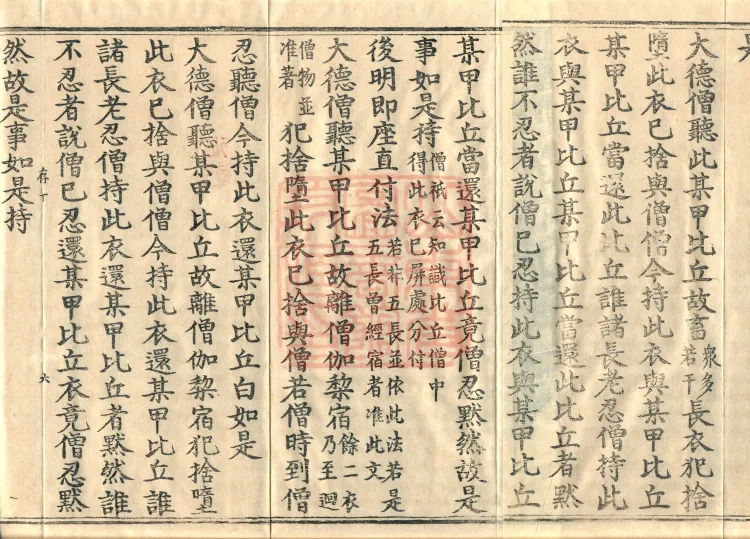 大德僧聽此某甲比丘故畜衆多若干長衣犯捨
墮此衣已捨與僧僧今持此衣與某甲比丘
某甲比丘當還此比丘誰諸長老忍僧持此
衣與某甲比丘某甲比丘當還此比丘者默
然誰不忍者說僧已忍持此衣與某甲比丘
某甲比丘當還某甲比丘竟僧忍默然故是
事如是持僧祇云知識比丘僧中得此衣已屏處分付
後明即座直付法若非五長並依此法若是五長曾經宿者准此文
大德僧聽某甲比丘故離僧伽棃宿餘二衣乃至迴
僧物並准者犯捨墮此衣已捨與僧若僧時到僧
忍聽僧今持此衣還某甲比丘白如是
大德僧聽某甲比丘故離僧伽棃宿犯捨墮
此衣已捨與僧僧今持此衣還某甲比丘誰
諸長老忍僧持此衣還某甲比丘者默然誰
不忍者說僧已忍還某甲比丘衣竟僧忍默
存丁 六
然故是事如是持